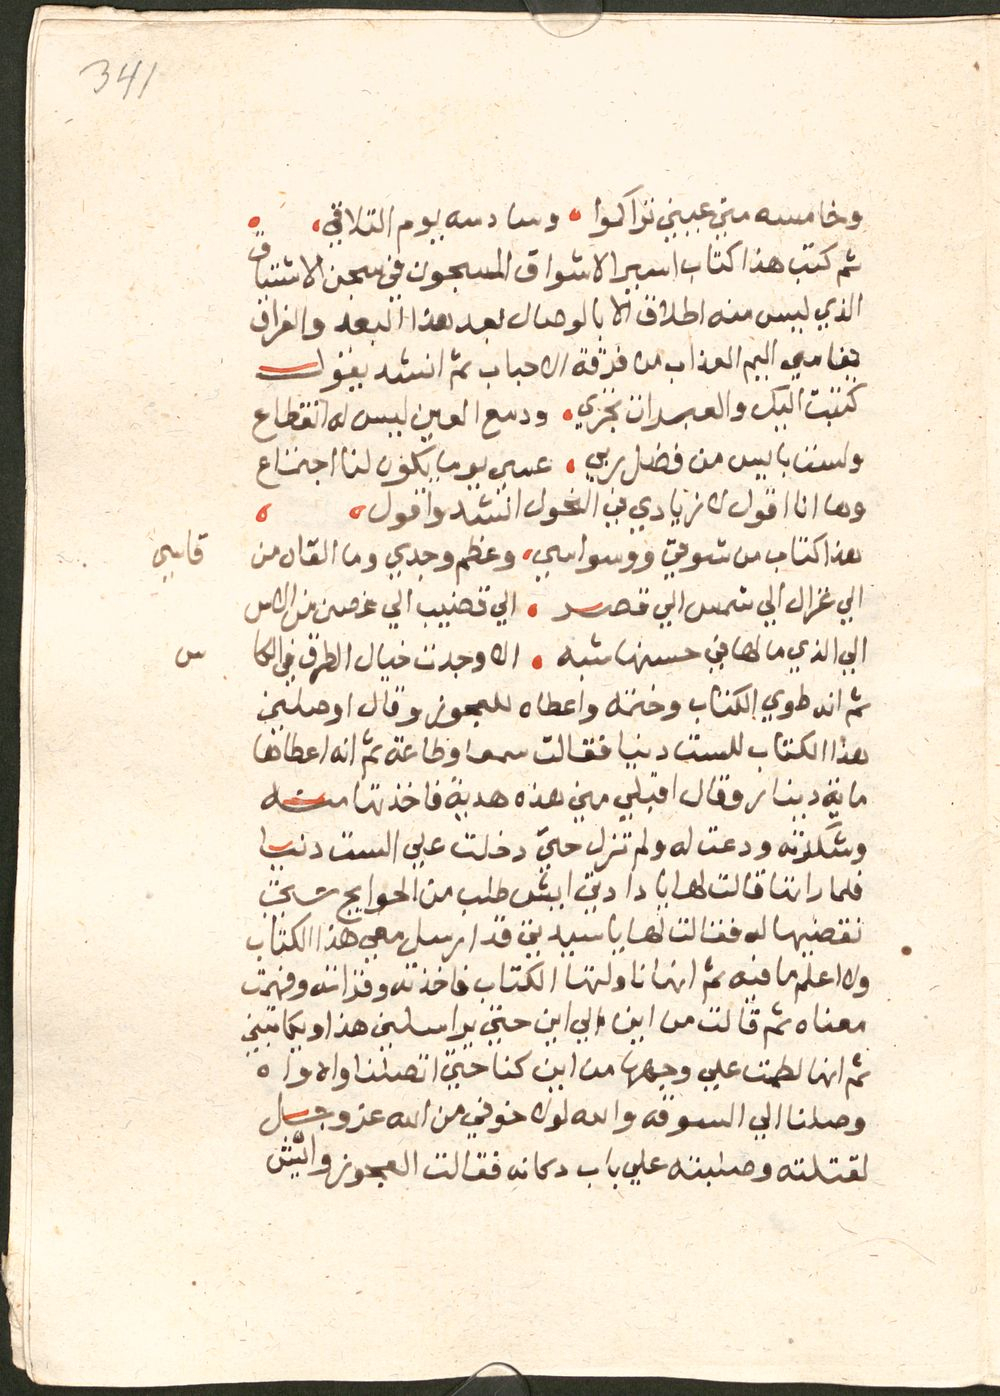 341
وخامسه مني عبيني تراكموا • وسادسه يوم التلاقي •
ثم كتب هذا كتاب اسير الاشواق المسجون في سجن الاشتياق
الذي ليس منه اطلاق الا بالوصال بعد هذا البعد والفراق
يقاسي اليم العذاب من فرقة الاحباب ثم انشد يقول
كتبت اليك والعبرات تجري • ودمع العين ليس له انقطاع
ولست بايس من فضل ربي • عسي يوما يكون لنا اجتماع
وها انا اقول انشد واقول
هذا كتاب من شوقي ووسواسي • وعظم وجدي وما القاه من قاسي
الي غزال الي شمس الي قمر • الي قضيب الي غصن من الاس
الي الذي ما لها في حسنها شبه • الا وجدت خيال الطرف في الكاس
ثم انه طوي الكتاب وختمه واعطاه للعجوز وقال اوصليني
هذا الكتاب للست دنيا فقالت سمعا وطاعة ثم انه اعطاها
ماية دينار وقال اقبلي مني هذه هدية فاخذتها منه
وشكرته ودعت له ولم تزل حتي دخلت علي الست دنيا
فلما راتها قالت لها يا دادتي ايش طلب من الحوايج حتي
نقضيها له فقالت لها يا سيدتي قد ارسل معي هذا الكتاب
ولا اعلم ما فيه ثم انها ناولتها الكتاب فاخذته وقراته وفهمت
معناه ثم قالت من اين الي اين حتي يراسلني هذا ويكاتبني
ثم انها لطمت علي وجهها من اين كنا حتي اتصلنا
وصلنا الي السوقه والله لولا خوفي من الله عز وجل
لقتلته وصلبته علي باب دكانه فقالت العجوز وايش